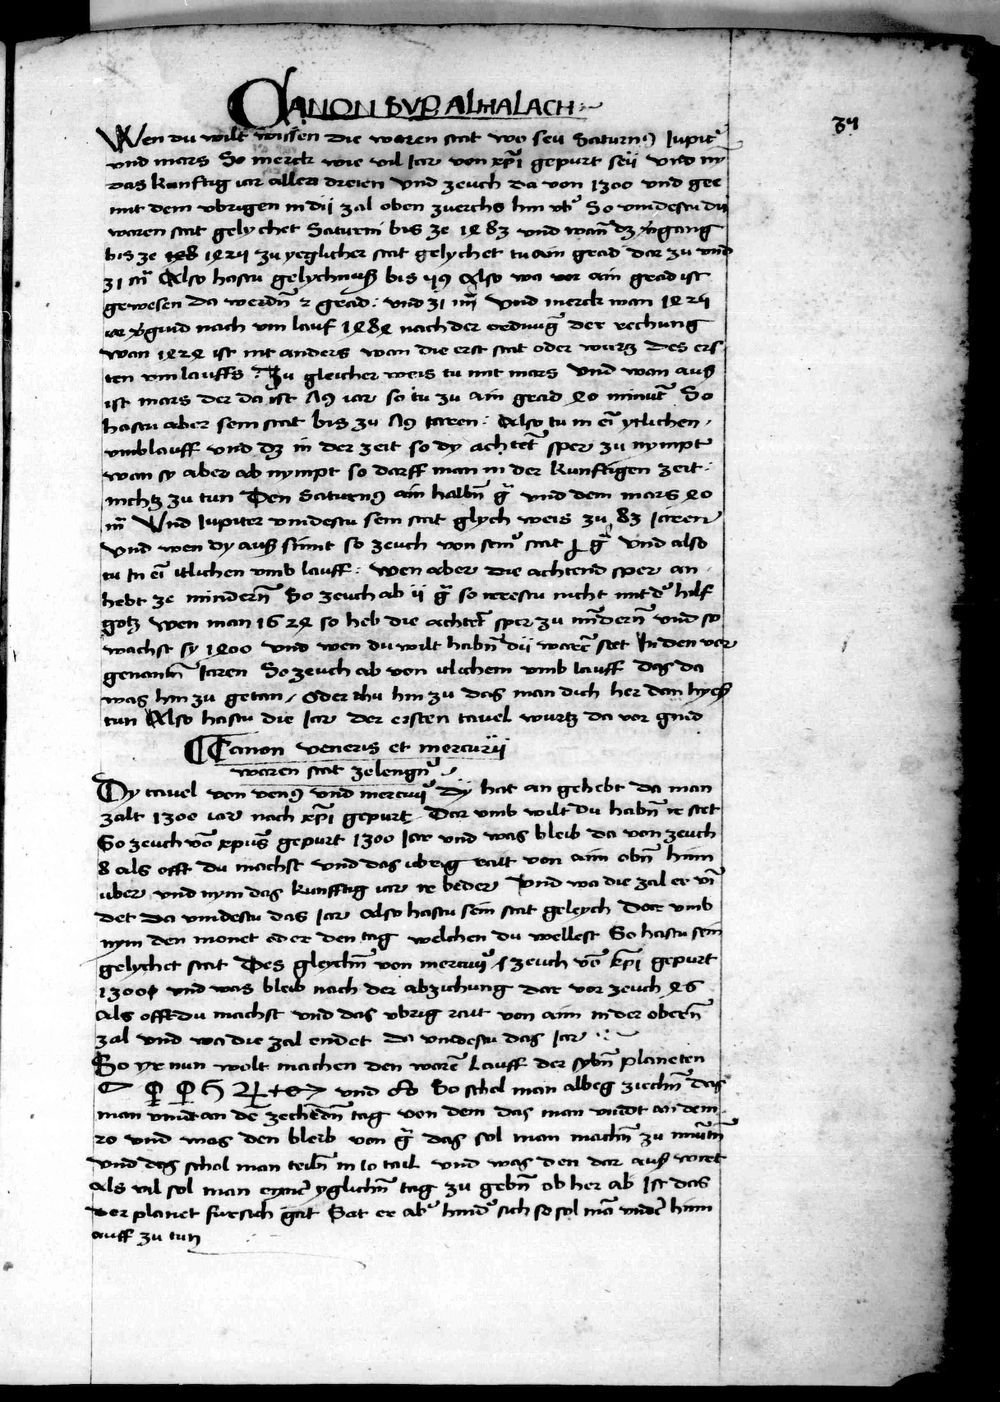 CANON SVP ALMALACH
34
Wen du wilt wissen die waren stat wo sey Saturnꝰ Jupitꝰ
vnd mars So merck wie vil Jar von xp̄i gepurt seÿ vnd ny
das kunftig iar allen dreien vnd zeuch da von 1300 vnd gee
mit dem vbrigen in dij zal oben zuerchs hin vbꝰ So vindestu du
waren stat gelychet Saturni bis ze 1483 vnd wan̄ dz v̄gang
bis ze 1424 zu yeglicher stat gelychet tu ain grad dar zu vnd
31 m̄ Also hastu gelychnuß bis 59 Also wo vor ain grad ist
gewesen da werdn̄ 2 grad : vnd 31 m̄ Vnd merck wan 1424
iar v̄gind nach vm lauf 1484 nach der ordnuḡ der rechung
wan 1424 ist nit anders wan die erst stat oder wurtz des ers
ten vmlauffs Zu gleicher weis tu mit mars Vnd wan auß
ist mars der da ist 79 iar so tu zu ain grad 40 minut̄ So
hastu aber sem stat bis zu 79 Jaren : Also tu in ei͞ ytlichen
vmblauff vnd dz in der zeit so dy achtet̄ sper zu nympt
wan sy aber ab nympt so darff man in der kunftigen zeit :
nichtz zu tun Den Saturnꝰ ain halbn̄ g̃ vnd dem mars 40
m̄ Vnd Jupiter vindestu sem stat glych weis zu 83 Jaren
vnd wen dy auß sint so zeuch von semꝰ stat g̃ Vnd also
tu In ei͞ itlichen vmb lauff : wen aber die achtend sper an
hebt ze mindern̄ So zeuch ab ij g̃ so irrestu nicht mit dꝰ hilf
gotz wen man 1624 so heb die achtet̄ sper zu mindern̄ vnd so
wachst sy 1400 vnd wen du wilt habn̄ dij ware͞ stet In den vor
genantn̄ Jaren So zeuch ab von itlichem vmb lauff das da
was hin zu getan / Oder thu hin zu das man dich her dan hyeß
tun Also hastu die Jar der ersten tauel wurtz da vor gind
Canon veneris et mercurij
waren stat zelengn̄
Dy tauel von venꝰ vnd mercurijꝰ dÿ hat an gehebt da man
zalt 1300 iar nach xp̄i gepurt Dar vmb wilt du habn̄ ir stet
So zeuch vō xpus̄ gepurt 1300 Jar vnd was bleib da von zeuch
8 als offt du machst vnd das vbrig rait von aim obn̄ hinn
vber vnd nym das kunfftig iar ir beder Vnd wa die zal er vi͞
det da vindestu das Jar Also hastu sein stat geleych Dar vmb
nym den monet oder den tag welchen du wellest So hastu sein
gelychet stat Des gleychn̄ von mercurijꝰ zeuch vō xp̄i gepurt
1300 vnd was bleib nach der abzichung dar vor zeuch 46
Als offt du machst vnd das vbrig rait von aim in der obern̄
zal vnd wa die zal endet da vindestu das Jar
So yr nun wolt machen den ware͞ Lauff der sybn̄ planeten
☾ ☿ ♀ ♄ ♃ ☉ vnd ♂ So schol man albeg ziechn̄ das
man vindt an de͞ zechedn̄ tag von dem das man vindt an dem
20 vnd was den bleib von g̃ das sol man machn̄ zu minutn̄
vnd das schol man teiln̄ in 10 tail vnd was den dar auß wirt
Als vil sol man einer yglichn̄ tag zu gebn̄ ob her ab Ist das
der planet fursich gat Gat er abꝰ hindꝰ sich so sol ma͞ vnder hinn
auff zu tun